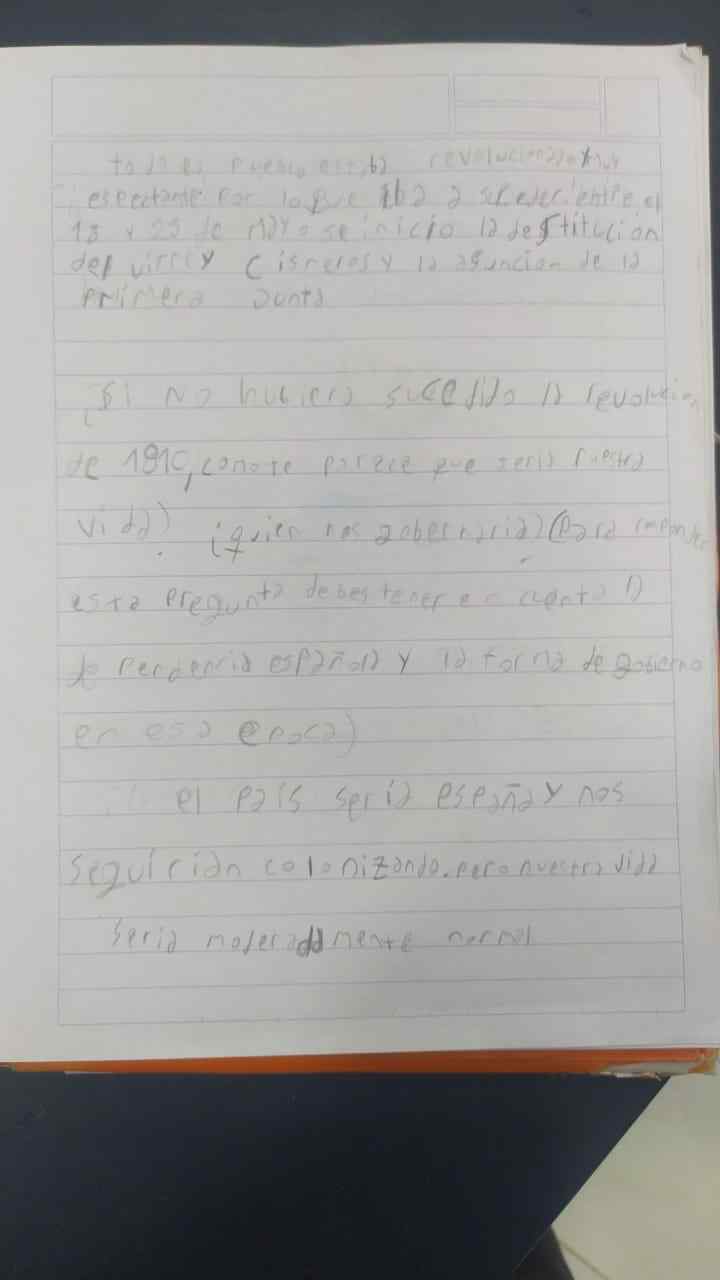 todo el pueblo estaba revolucionado y muy
espectante por lo que iba a suceder, entre el
18 y 25 de mayo se inicio la destitucion
del virrey Cisneros y la asuncion de la
primera Junta
¿Si no hubiera sucedido la revolucion
de 1810, como te parece que seria nuestra
vida? ¿quien nos gobernaria? (Para responder
esta pregunta debes tener en cuenta la
dependencia española y la forma de gobierno
en esa epoca)
el pais seria españa y nos
seguirian colonizando. pero nuestra vida
seria moderadamente normal